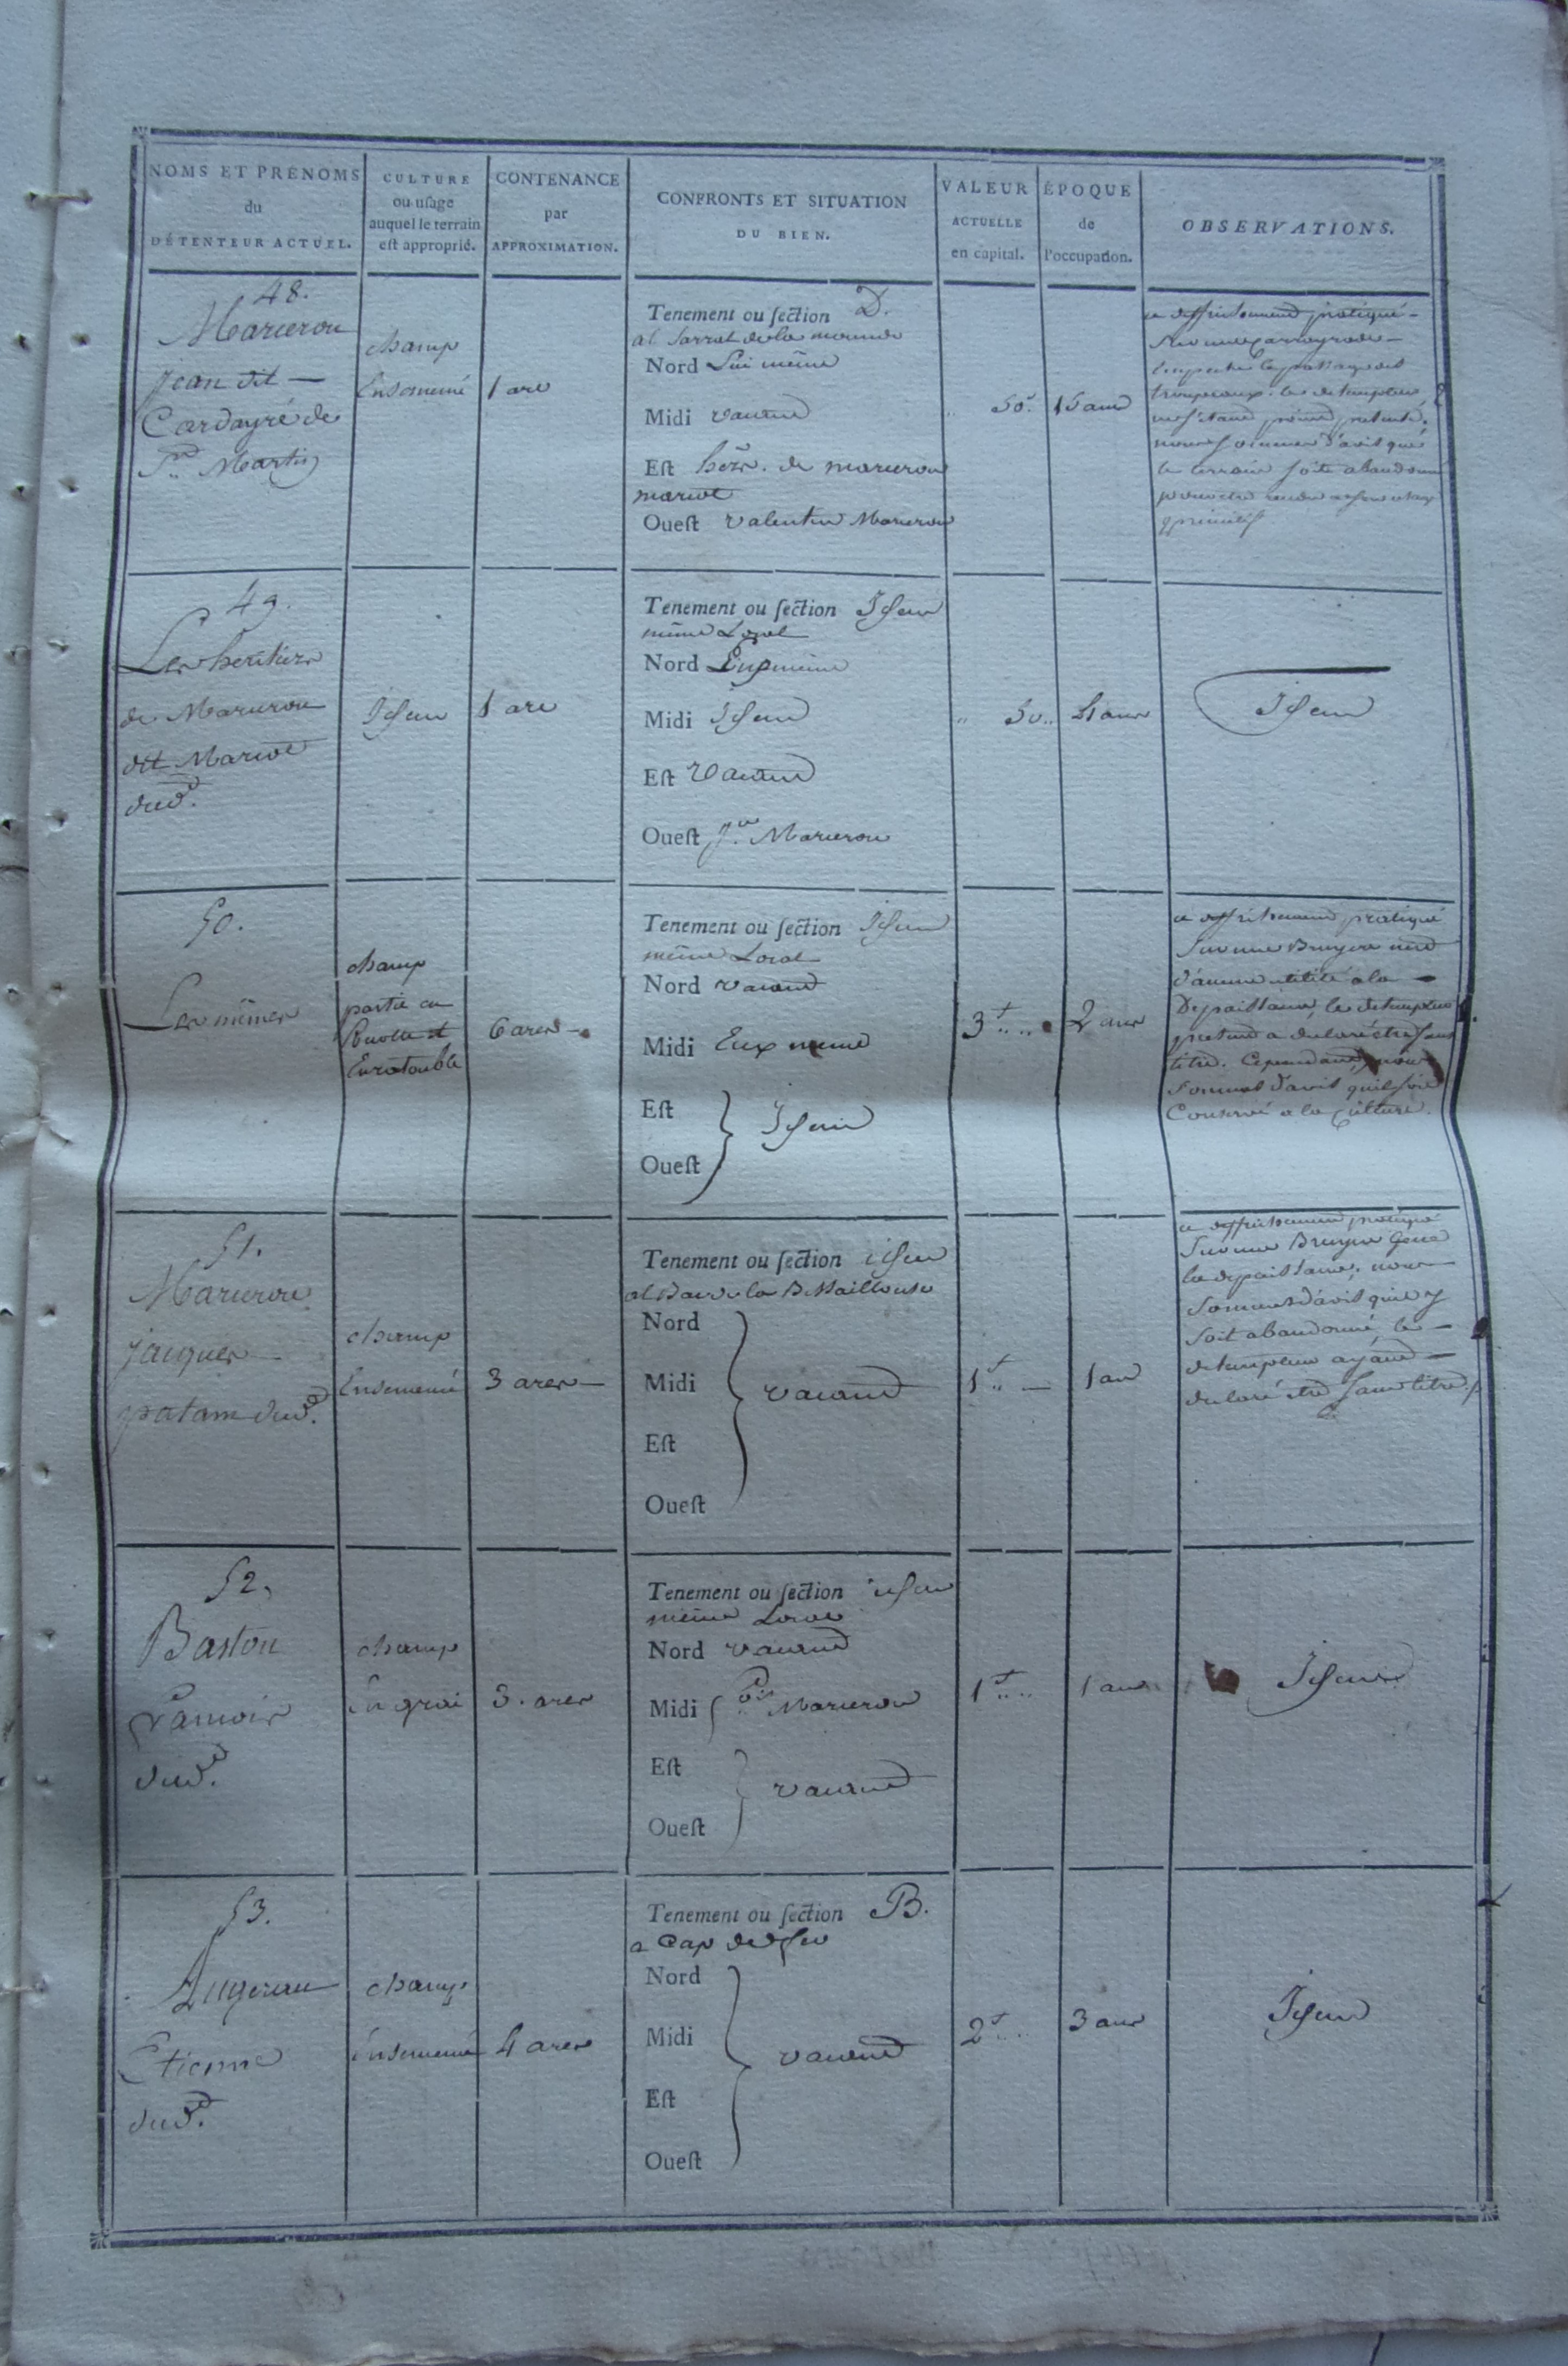 NOMS ET PRÉNOMS
du
DÉTENTEUR ACTUEL.
CULTURE
ou uſage
auquel le terrain
eſt approprié.
CONTENANCE
par
APPROXIMATION.
CONFRONTS ET SITUATION
DU BIEN.
VALEUR
ACTUELLE
en capital.
ÉPOQUE
de
l'occupation.
OBSERVATIONS.
48.
Marcerou
Jean dit
Cardayré de
St. Martin
champ
Ensemencé
1 are
Tenement ou ſection D.
al Sarrat de la
Nord Lui même
Midi vacant
Est hérs. de marcerou
marcot
Oueſt valentin Marcerou
50.
15 ans
ce deffrichement pratiqué
sur une
empeche le pacage des
troupeaux. le detempteur
ne s'étant point présenté.
nous sommes d'avis que
le terrain soit abandonné
pour être rendu a son etat
primitif
49.
Les heritiers
de Marcerou
dit Marcot
dud.
Idem
1 are
Tenement ou ſection Idem
même Local
Nord Eux même
Midi Idem
Eſt Vacant
Oueſt Jn. Marcerou
50..
4 ans
Idem
50.
Les mêmes
champ
partie en
et
Enratouble
6 ares
Tenement ou ſection Idem
même Local
Nord vacant
Midi Eux meme
Eſt
Oueſt
Idem
3 f
2 ans
ce deffrichement pratiqué
sur une Bruyere n'est
d'aucune utilité a la
Depaissance, le detempteur
a declaré être sans
titre. Cependant nous
sommes d'avis qu'il soit
Conservé a la Culture.
51.
Marcerou
jacques
patam dud.
champ
Ensemencé
3 ares
Tenement ou ſection idem
al Bac de la
Nord
Midi
Eſt
Oueſt
vacant
1 f
1 an
ce deffrichement pratiqué
sur une Bruyere Gene
la depaissance, nous
sommes d'avis qu'il y
soit abandonné, le
detempteur ayant
declaré etre sans titre.
52.
Baston
dud.
champ
3. ares
Tenement ou ſection idem
même Local
Nord vacant
Midi Marcerou
Eſt
Oueſt
vacant
1 f
1 an
Idem
53.
Augerau
Etienne
dud.
champ
Ensemencé
4 ares
Tenement ou ſection B.
a Cap
Nord
Midi
Eſt
Oueſt
vacant
2 f
3 ans
Idem